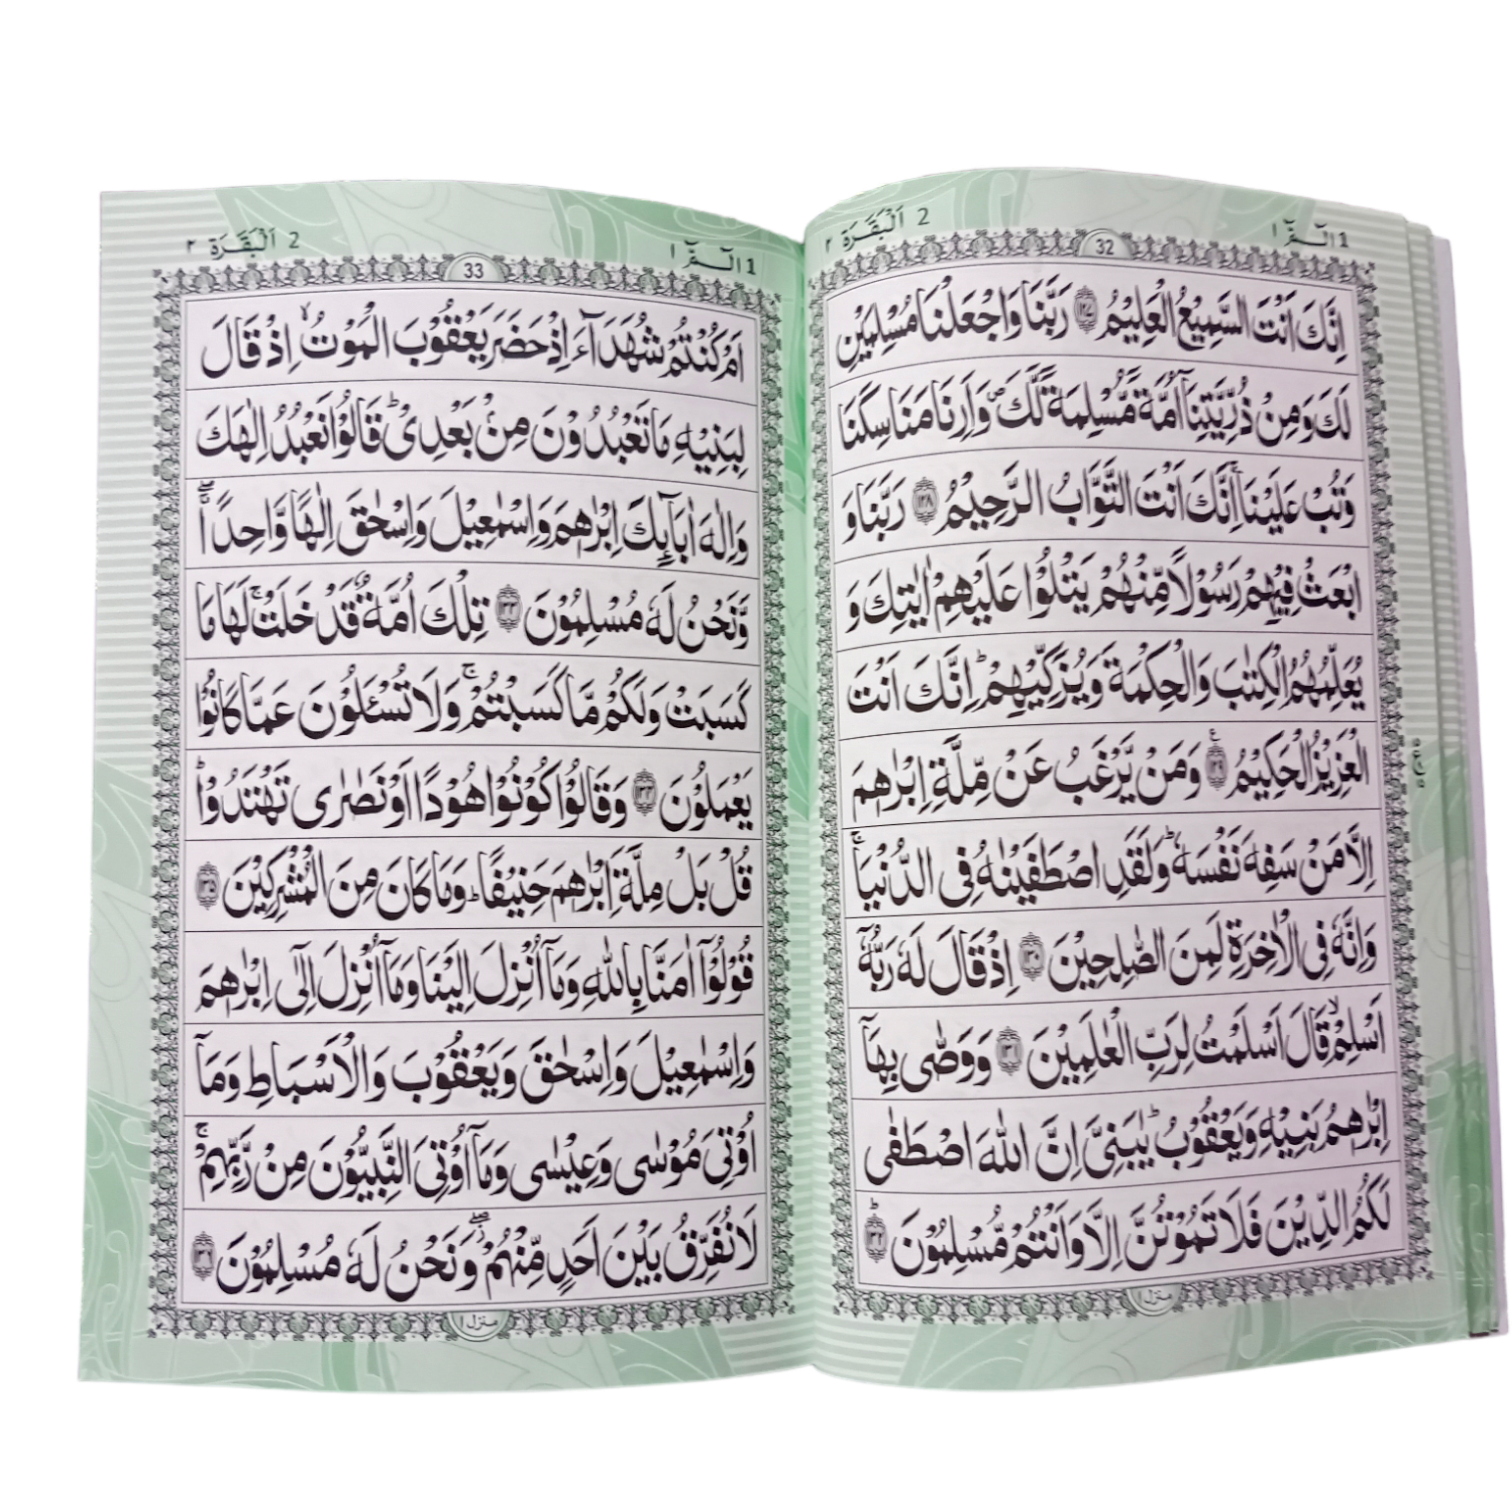 1 الٓـمّٓ ١
32
2 اَلْبَقَرَة ٢
اِنَّكَ اَنْتَ السَّمِيْعُ الْعَلِيْمُ ﴿۱۲۷﴾ رَبَّنَا وَاجْعَلْنَا مُسْلِمَيْنِ
لَكَ وَمِنْ ذُرِّيَّتِنَاۤ اُمَّةً مُّسْلِمَةً لَّكَ ۪ وَاَرِنَا مَنَاسِكَنَا
وَتُبْ عَلَيْنَا ۚ اِنَّكَ اَنْتَ التَّوَّابُ الرَّحِيْمُ ﴿۱۲۸﴾ رَبَّنَا وَ
ابْعَثْ فِيْهِمْ رَسُوْلًا مِّنْهُمْ يَتْلُوْا عَلَيْهِمْ اٰيٰتِكَ وَ
يُعَلِّمُهُمُ الْكِتٰبَ وَالْحِكْمَةَ وَيُزَكِّيْهِمْ ؕ اِنَّكَ اَنْتَ
الْعَزِيْزُ الْحَكِيْمُ ﴿۱۲۹﴾ وَمَنْ يَّرْغَبُ عَنْ مِّلَّةِ اِبْرٰهٖمَ
اِلَّا مَنْ سَفِهَ نَفْسَهٗ ؕ وَلَقَدِ اصْطَفَيْنٰهُ فِى الدُّنْيَا ۚ
وَاِنَّهٗ فِى الْاٰخِرَةِ لَمِنَ الصّٰلِحِيْنَ ﴿۱۳۰﴾ اِذْ قَالَ لَهٗ رَبُّهٗۤ
اَسْلِمْ ۙ قَالَ اَسْلَمْتُ لِرَبِّ الْعٰلَمِيْنَ ﴿۱۳۱﴾ وَوَصّٰى بِهَاۤ
اِبْرٰهٖمُ بَنِيْهِ وَيَعْقُوْبُ ؕ يٰبَنِىَّ اِنَّ اللّٰهَ اصْطَفٰى
لَكُمُ الدِّيْنَ فَلَا تَمُوْتُنَّ اِلَّا وَاَنْتُمْ مُّسْلِمُوْنَ ؕ ﴿۱۳۲﴾
منزل ١
1 الٓـمّٓ ١
33
2 اَلْبَقَرَة ٢
اَمْ كُنْتُمْ شُهَدَآءَ اِذْ حَضَرَ يَعْقُوْبَ الْمَوْتُ ۙ اِذْ قَالَ
لِبَنِيْهِ مَا تَعْبُدُوْنَ مِنْۢ بَعْدِىْ ؕ قَالُوْا نَعْبُدُ اِلٰهَكَ
وَاِلٰهَ اٰبَآئِكَ اِبْرٰهٖمَ وَاِسْمٰعِيْلَ وَاِسْحٰقَ اِلٰهًا وَّاحِدًا ۖۚ
وَّنَحْنُ لَهٗ مُسْلِمُوْنَ ﴿۱۳۳﴾ تِلْكَ اُمَّةٌ قَدْ خَلَتْ ۚ لَهَا مَا
كَسَبَتْ وَلَكُمْ مَّا كَسَبْتُمْ ۚ وَلَا تُسْئَلُوْنَ عَمَّا كَانُوْا
يَعْمَلُوْنَ ﴿۱۳۴﴾ وَقَالُوْا كُوْنُوْا هُوْدًا اَوْ نَصٰرٰى تَهْتَدُوْا ؕ
قُلْ بَلْ مِلَّةَ اِبْرٰهٖمَ حَنِيْفًا ؕ وَمَا كَانَ مِنَ الْمُشْرِكِيْنَ ﴿۱۳۵﴾
قُوْلُوْۤا اٰمَنَّا بِاللّٰهِ وَمَاۤ اُنْزِلَ اِلَيْنَا وَمَاۤ اُنْزِلَ اِلٰۤى اِبْرٰهٖمَ
وَاِسْمٰعِيْلَ وَاِسْحٰقَ وَيَعْقُوْبَ وَالْاَسْبَاطِ وَمَاۤ
اُوْتِىَ مُوْسٰى وَعِيْسٰى وَمَاۤ اُوْتِىَ النَّبِيُّوْنَ مِنْ رَّبِّهِمْ ۚ
لَا نُفَرِّقُ بَيْنَ اَحَدٍ مِّنْهُمْ ۖ وَنَحْنُ لَهٗ مُسْلِمُوْنَ ﴿۱۳۶﴾
منزل ١